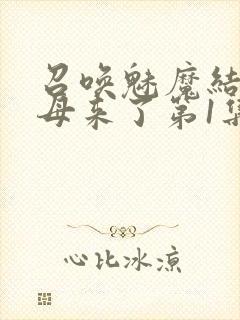 召唤魅魔结
母来了第1集
心比冰凉